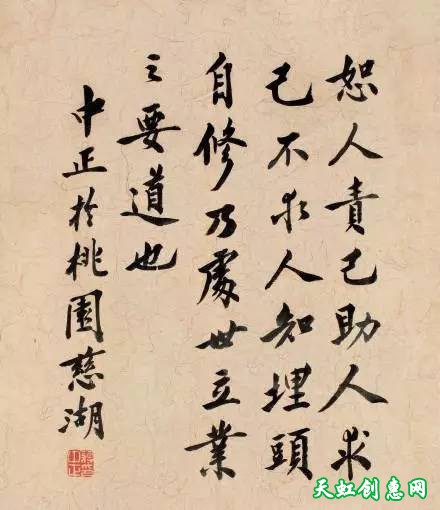 恕人責己助人求
己不求人知埋頭
自修乃處世立業
之要道也
中正於桃園慈湖
天虹创意网